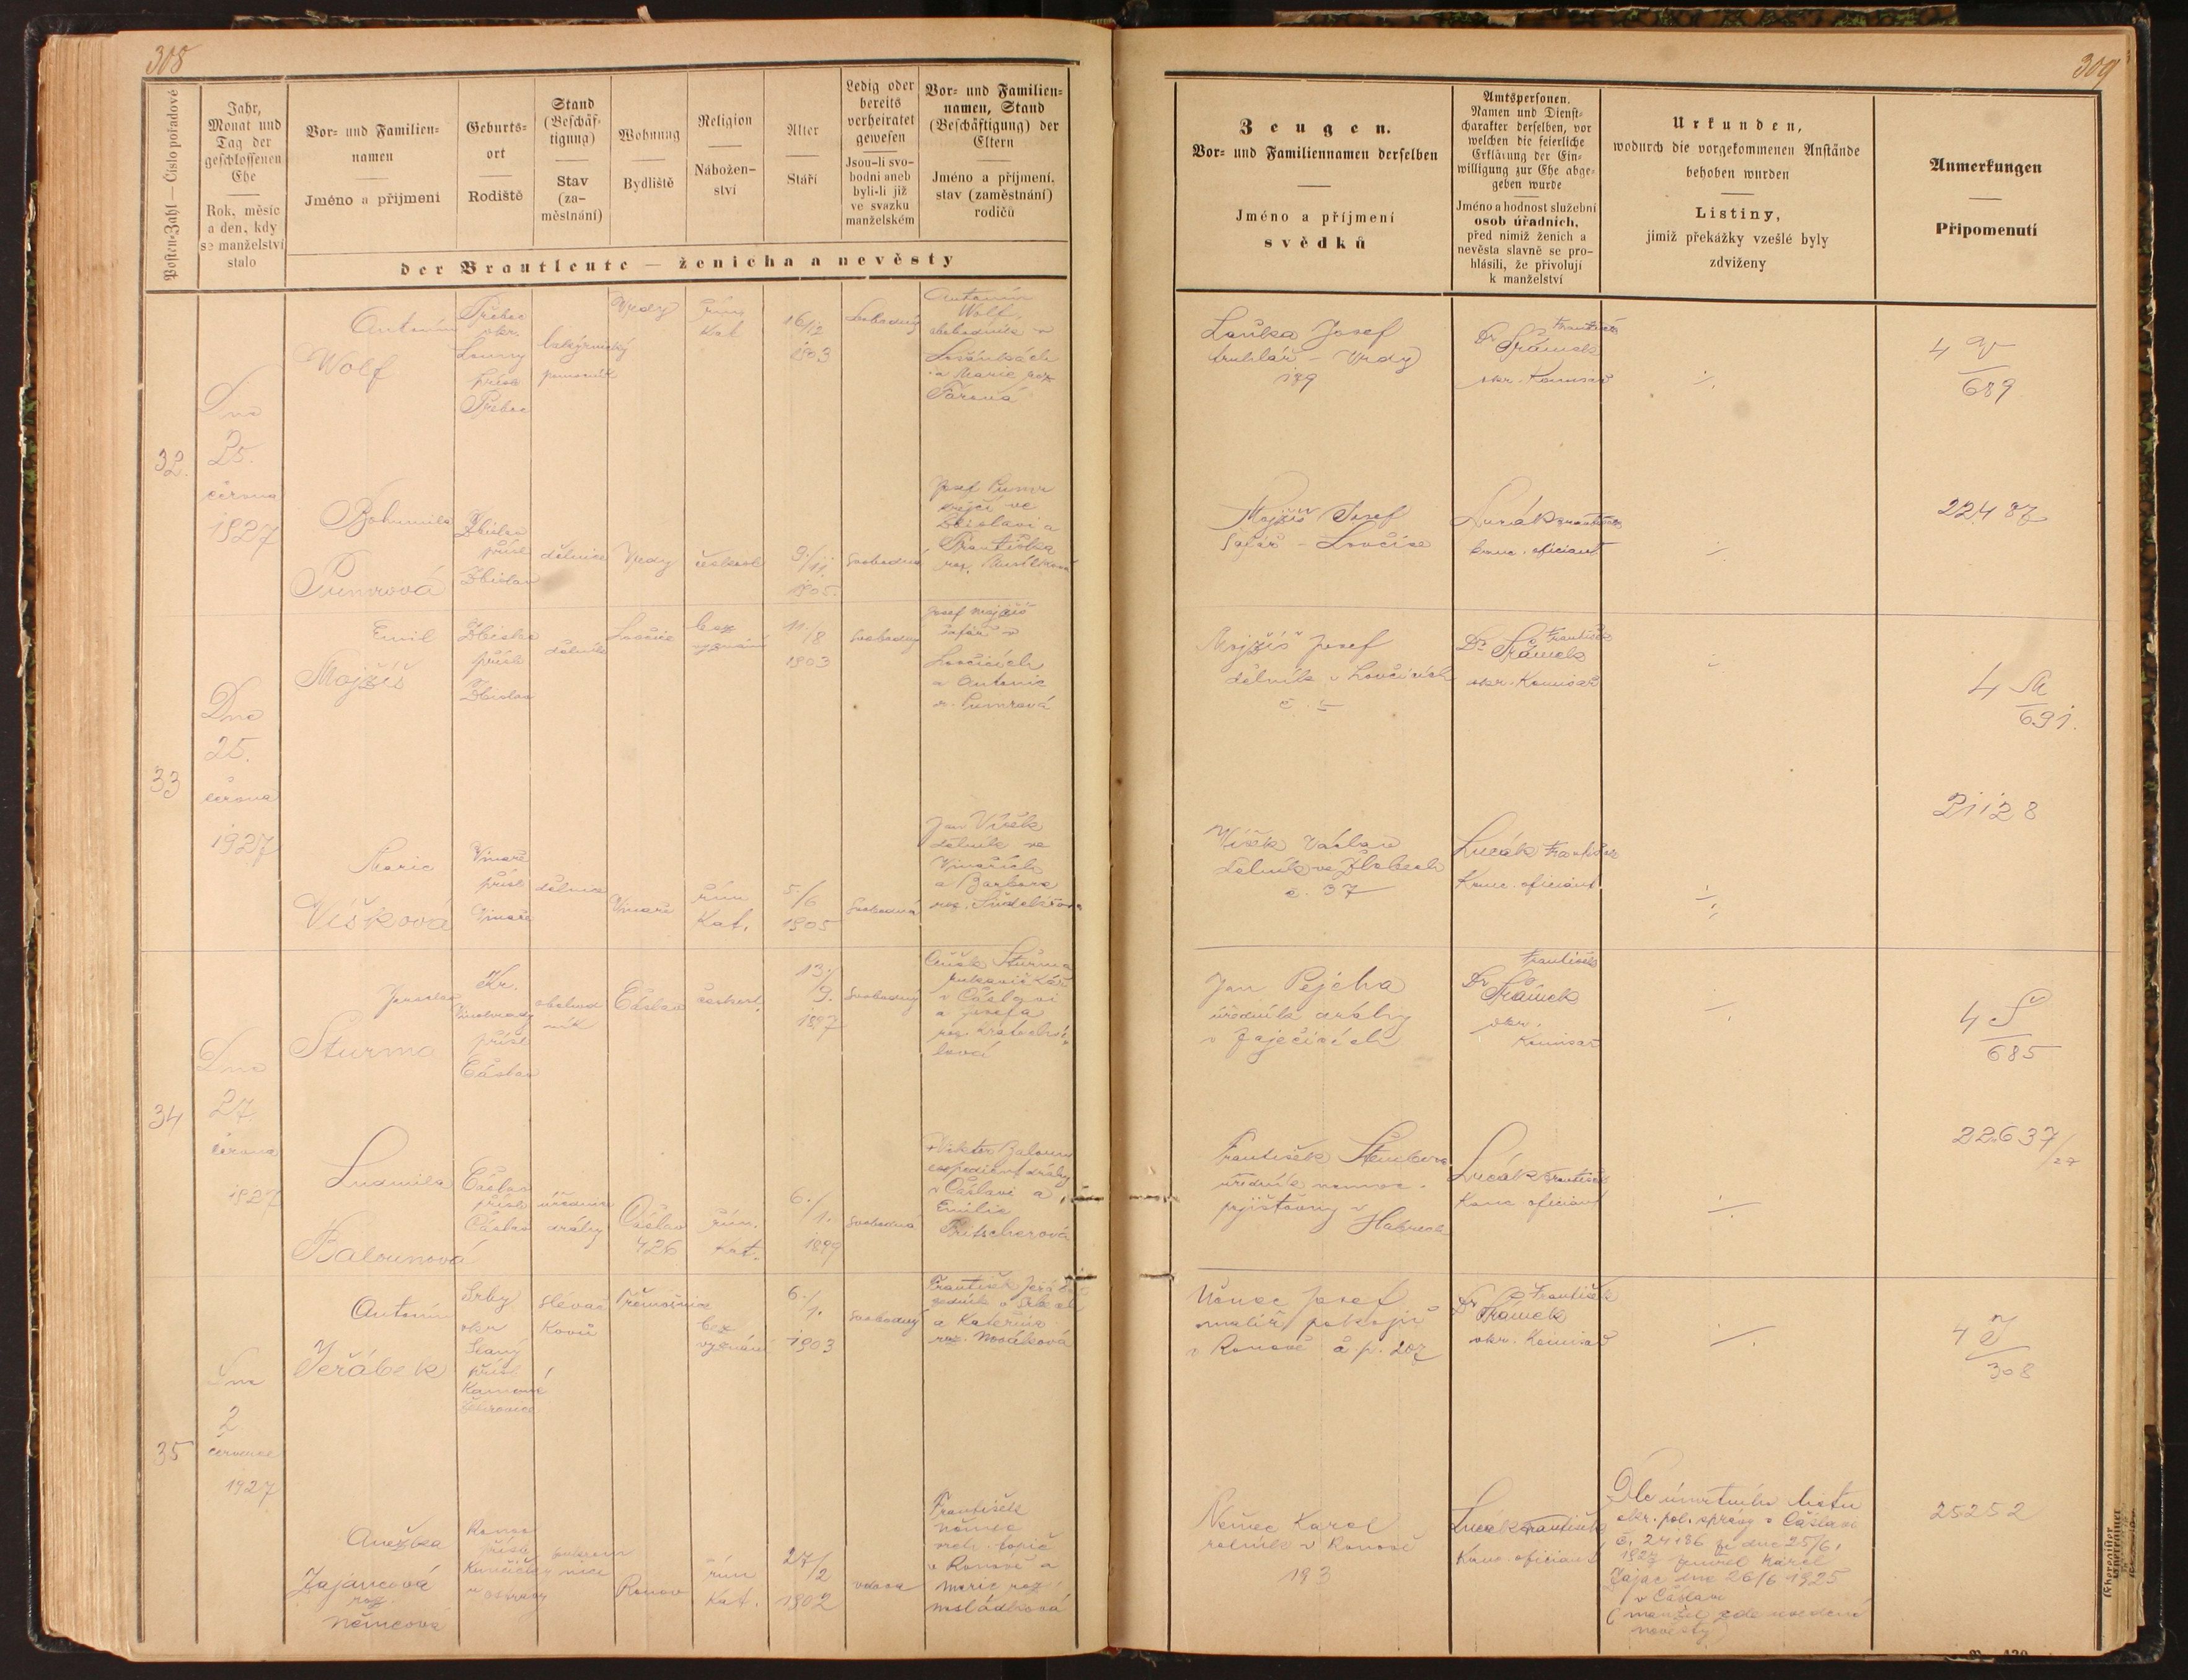 308
309
Posten-Zahl — Číslo pořadové
Jahr,
Monat und
Tag der
geschlossenen
Ehe
Rok, měsíc
a den, kdy
se manželství
stalo
Vor- und Familien-
namen
Jméno a příjmení
Geburts-
ort
Rodiště
Stand
(Beschäf-
tigung)
Stav
(za-
městnání)
Wohnung
Bydliště
Religion
Nábožen-
ství
Alter
Stáří
Ledig oder
bereits
verheiratet
gewesen
Jsou-li svo-
bodni aneb
byli-li již
ve svazku
manželském
Vor- und Familien-
namen, Stand
(Beschäftigung) der
Eltern
Jméno a příjmení,
stav (zaměstnání)
rodičů
der Brautleute — ženicha a nevěsty
Zeugen.
Vor- und Familiennamen derselben
Jméno a příjmení
svědků
Amtspersonen.
Namen und Dienst-
charakter derselben, vor
welchen die feierliche
Erklärung der Ein-
willigung zur Ehe abge-
geben wurde
Jméno a hodnost služební
osob úředních,
před nimiž ženich a
nevěsta slavně se pro-
hlásili, že přivolují
k manželství
Urkunden,
wodurch die vorgekommenen Anstände
behoben wurden
Listiny,
jimiž překážky vzešlé byly
zdviženy
Anmerkungen
Připomenutí
32.
Dne
25.
června
1927
Antonín
Wolf
Třeboc
okr.
Louny
přísl.
Třeboc
pomocník
Vrdy
řím.
kat.
16/12
1903
Svobodný
Antonín
Wolf,
obchodník v
a Marie roz.
Bohumila
Pumrová
Zbislav
přísl.
Zbislav
dělnice
Vrdy
českosl.
9./11.
1905.
Svobodná
Josef Pumr
krejčí ve
Zbislavi a
Františka
roz.
Louka Josef
truhlář - Vrdy
189
Dr František
Šrámek
okr. komisař
4 W
689
Mojžíš Josef
šafář - Lovčice
Lucák František
kanc. oficiant
22487
33
Dne
25.
června
1927
Emil
Mojžíš
Zbislav
přísl.
Zbislav
dělník
Lovčice
bez
vyznání
11./8
1903
Svobodný
Josef Mojžíš
šafář v
Lovčicích
a Antonie
r. Pumrová
Marie
Víšková
Vinaře
přísl.
Vinaře
dělnice
Vinaře
řím
Kat.
5./6
1905
Svobodná
Jan Víšek
dělník ve
Vinařích
a Barbora
roz.
Mojžíš Josef
dělník v Lovčicích
č. 5
Dr František
Šrámek
okr. Komisař
4 M
691.
Víšek Václav
dělník ve Žlebech
č. 37
Lucák František
Kanc. oficiant
21128
34
Dne
27.
června
1927
Jaroslav
Šturma
Kr.
Vinohrady
přísl.
Čáslav
obchod
ník
Čáslav
českosl.
13./
9.
1897
Svobodný
Šturma
rukavičkář
v Čáslavi
a Josefa
roz. Kratochví-
lová
Ludmila
Balounová
Čáslav
přísl.
Čáslav
úřednice
dráhy
Čáslav
426
řím.
Kat.
6./
1.
1899
Svobodná
Viktor Baloun
expedient dráhy
v Čáslavi a
Emilie
Butscherová
Jan Pejcha
úředník dráhy
v Zaječicích
Dr František
Šrámek
okr.
Komisař
4 Š
685
František Štembera
úředník nemoc.
pojišťovny v
Habrech
Lucák František
Kanc oficiant
22637/27
35
Dne
2
července
1927
Antonín
Jeřábek
Srby
okr
Slaný
přísl
Kamenné
Žehrovice
slévač
kovů
Třemošnice
bez
vyznání
6./
1.
1903
Svobodný
František Jeřábek
zedník v Srbech
a Kateřina
roz. Nováková
Anežka
Zajancová
roz.
Němcová
Ronov
přísl.
Ronov
řím
Kat.
27/2
1902
vdova
František
Němec
topič
v Ronově a
Marie roz.
Mosládková
Němec Josef
malíř pokojů
v Ronově č. p. 207
Dr František
Šrámek
okr. Komisař
4 J
308
Němec Karel
rolník v Ronově
193
Lucák František
Kanc. oficiant
Dle úmrtního listu
okr. pol. správy v Čáslavi
č. 24186 ze dne 25/6.
1927 zemřel Karel
Zajac dne 26/6 1925
v Čáslavi
(manžel zde uvedené
nevěsty)
25252